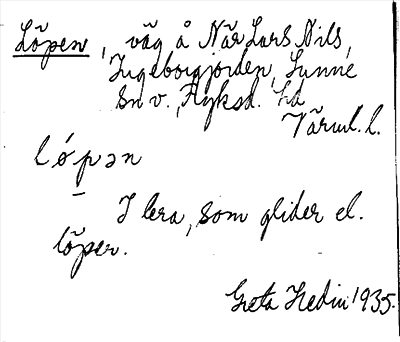 Löpen, väg å När Lars Nils,
Ingeborgjorden, Sunne
sn v., Fryksd. hd
Värml. l.
l ó p ə n
I lera, som glider el.
löper.
Greta Hedin 1935.